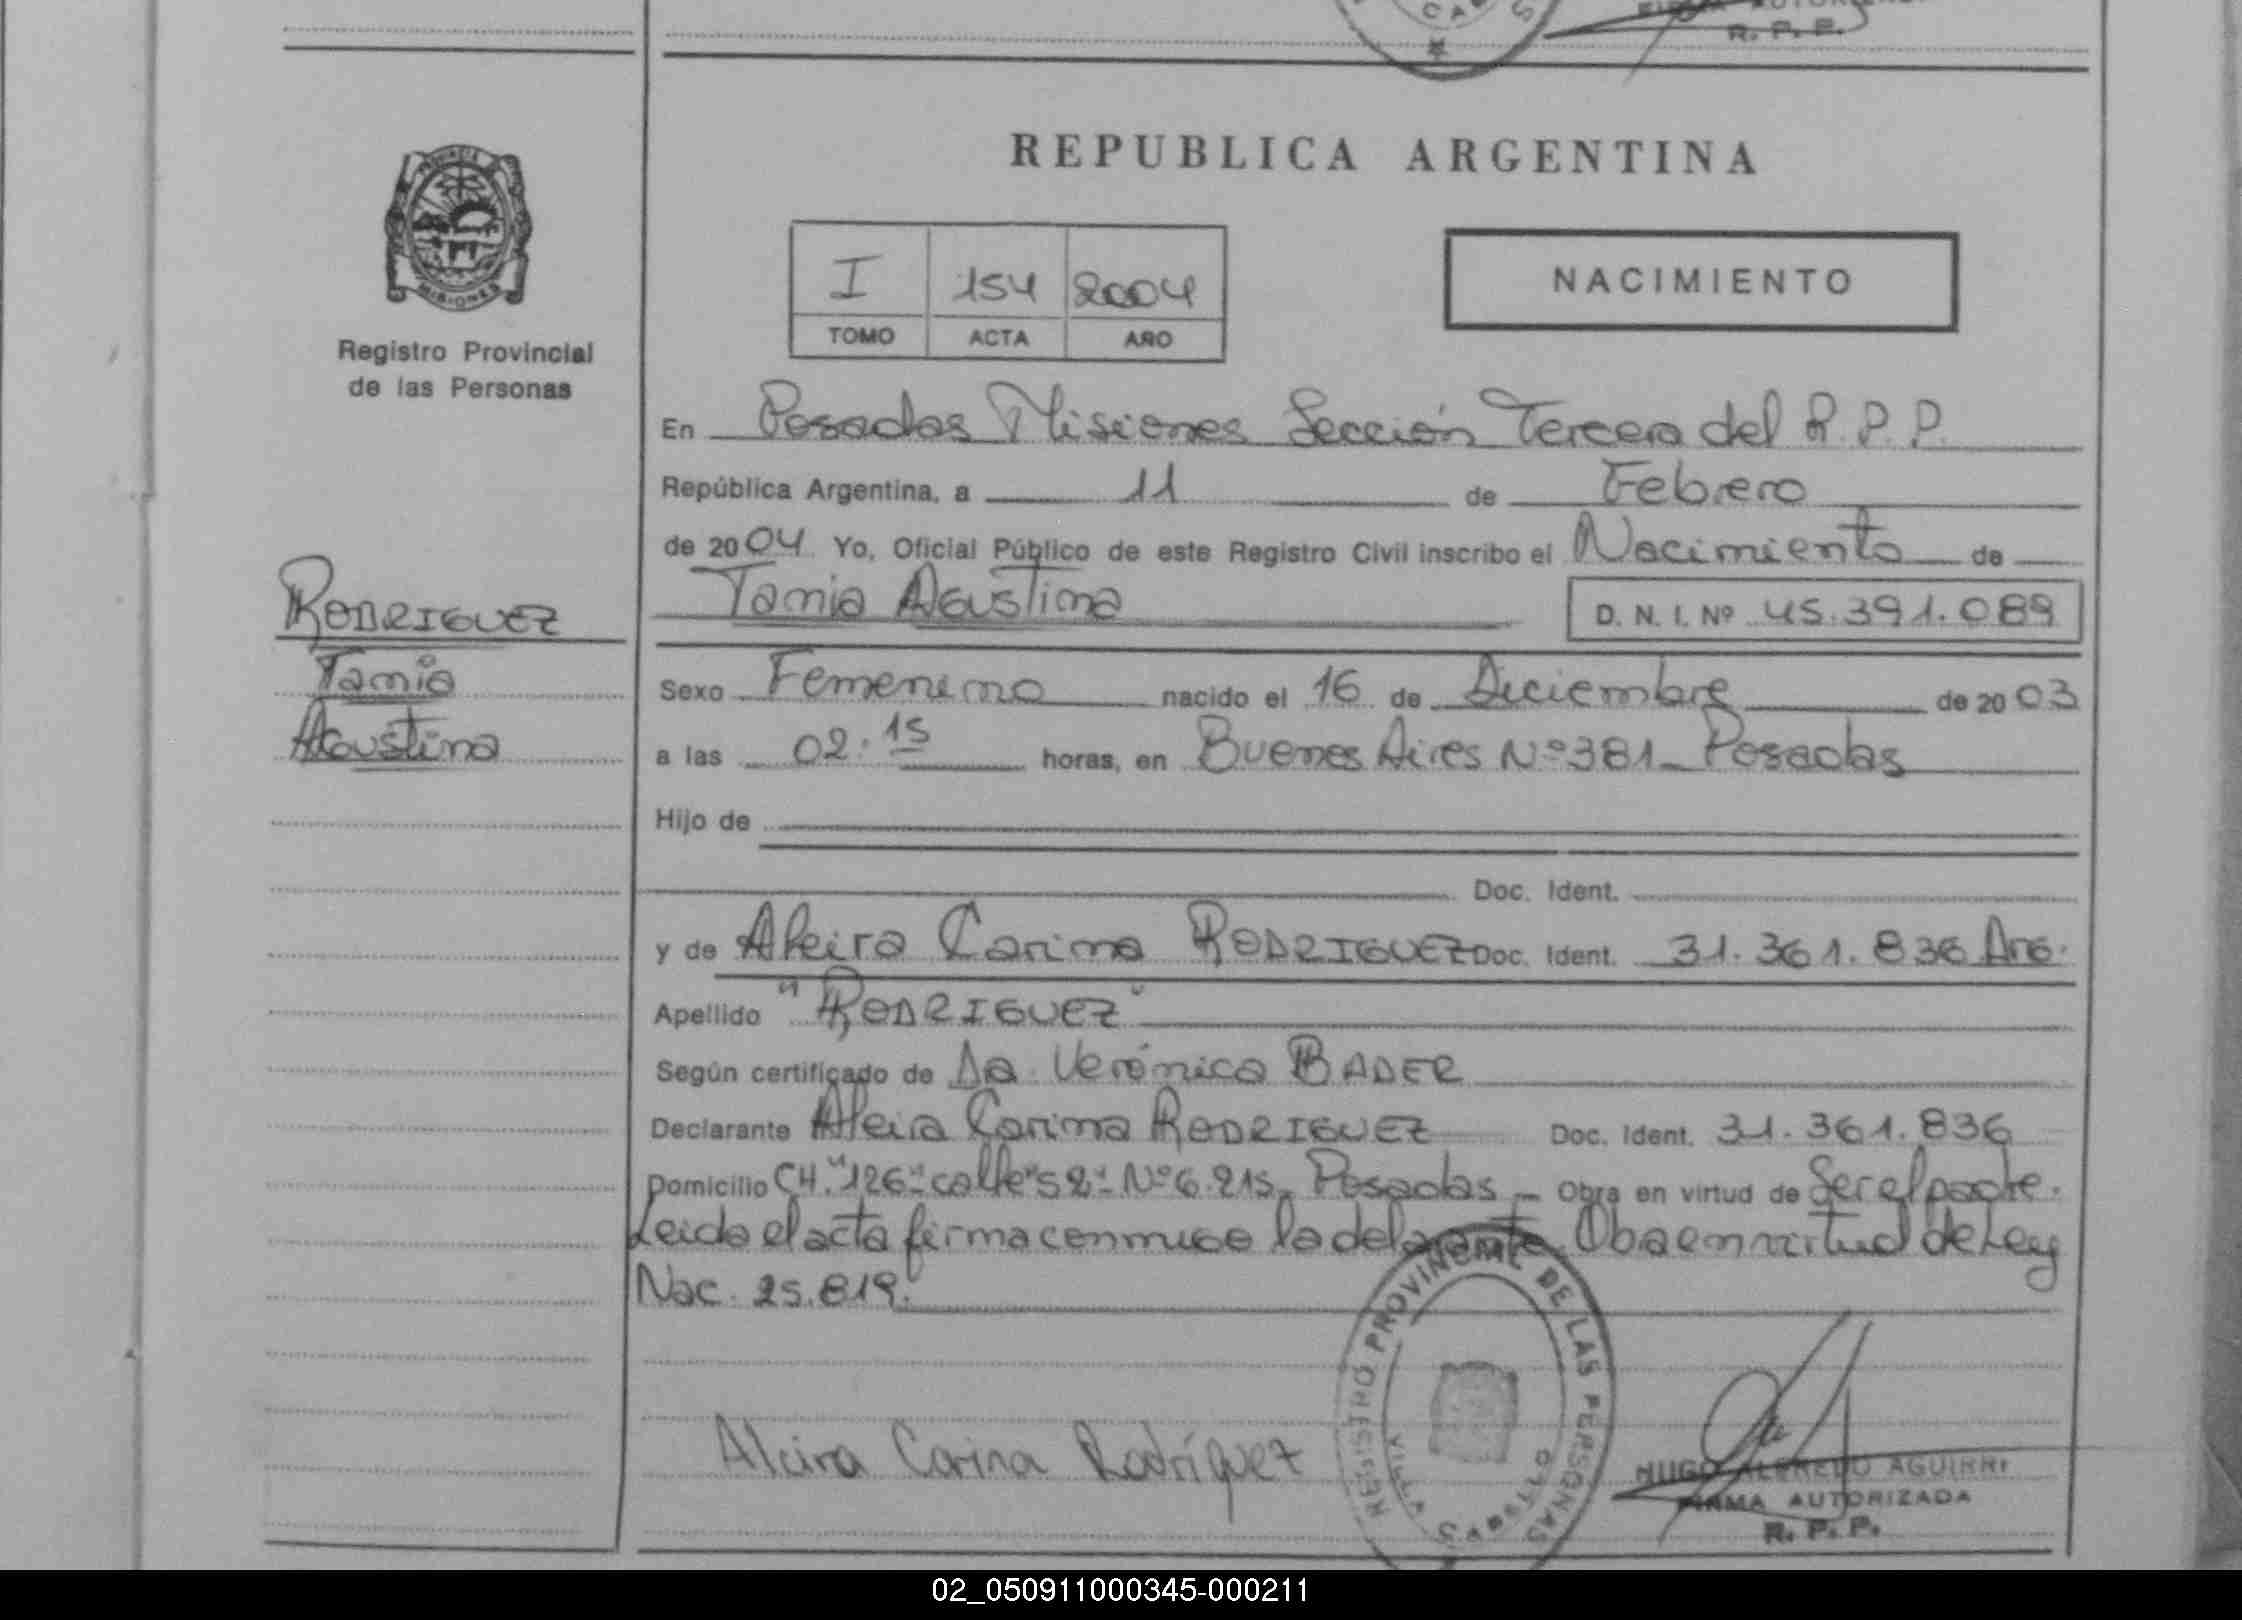 R. P. P.
REPUBLICA ARGENTINA
MISIONES
Registro Provincial
de las Personas
I 154 2004
TOMO ACTA AÑO
NACIMIENTO
En Posadas Misiones Sección Tercera del R.P.P.
República Argentina, a 11 de Febrero
de 2004 Yo, Oficial Público de este Registro Civil inscribo el Nacimiento de
Tania Agustina D. N. I. Nº 45.391.089
RODRIGUEZ
Tania
Agustina
Sexo Femenino nacido el 16 de Diciembre de 2003
a las 02.15 horas, en Buenos Aires Nº 381 - Posadas
Hijo de
Doc. Ident.
y de Alcira Carina RODRIGUEZ Doc. Ident. 31.361.836 Arg.
Apellido "RODRIGUEZ"
Según certificado de Da. Verónica BADER
Declarante Alcira Carina RODRIGUEZ Doc. Ident. 31.361.836
Domicilio CH. "126" calle "52" Nº 6.215 - Posadas - Obra en virtud de Ser el padre.
Leida el acta firma conmigo la delarante Obra en virtud de Ley
Nac. 25.819.
REGISTRO PROVINCIAL DE LAS PERSONAS
VILLA
POSADAS
Alcira Carina Rodríguez
HUGO ALFREDO AGUIRRE
FIRMA AUTORIZADA
R. P. P.
02_050911000345-000211